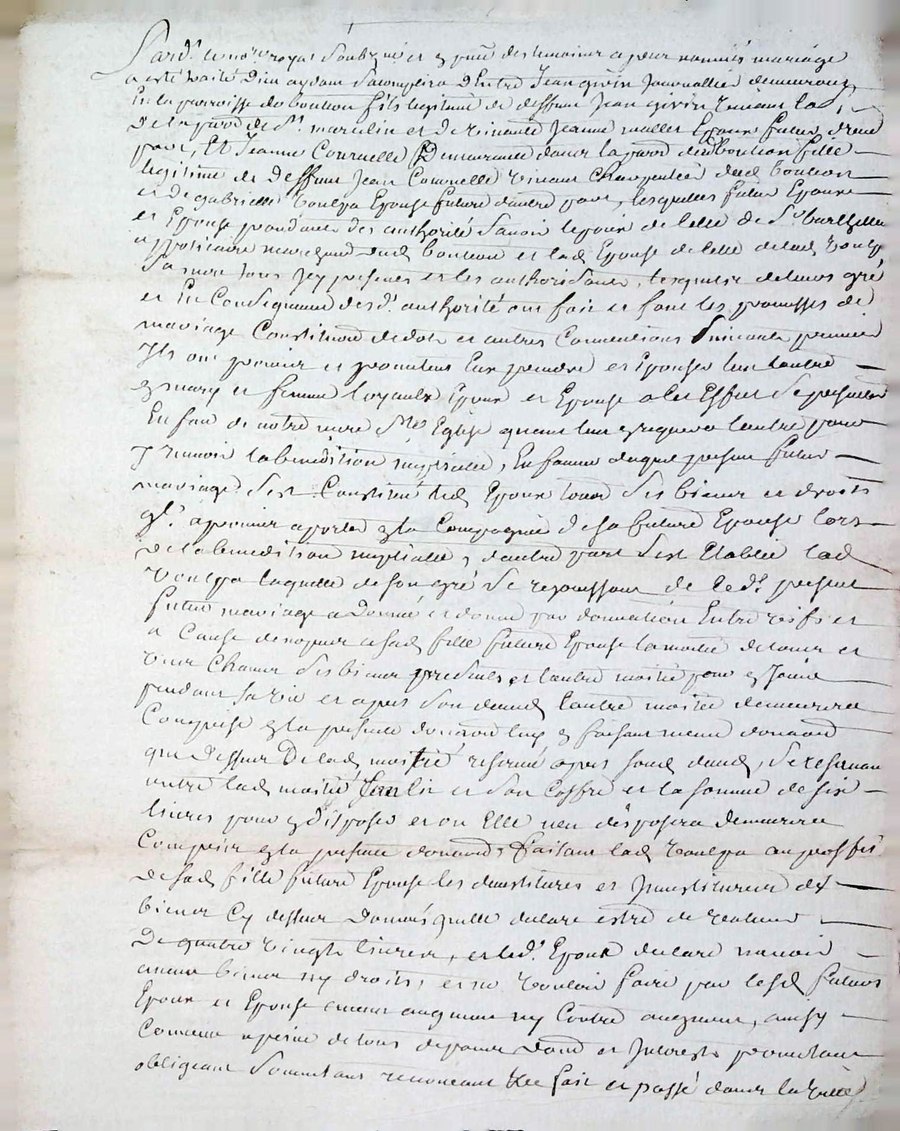 Pard. le no.re royal Soubz.né et p.nt des temoins apres nommés mariage
a esté traité Dieu aydant S'acomplira Entre Jean guerin Journallier demeurant
En la parroisse de boulion fils legitime de deffunt Jean guerin vivant lad
De la parr de S.t marcelin et de Jeanne Epoux futur d'une
part, Et Jeanne Courvelle Demeurante dans la parr dud boulion fille
legitime de Deffunt Jean Courvelle vivant Charpentier dud boulion
et de gabrielle voulpa Epouse future d'autre part, lesquels futur Epoux
et Epouse procédants des authorité Savoir lepoux de Celle de S.r barthelem
apoticaire marchand dud boulion et lad Epouse de Celle de lad voulp
Sa mere tous Jcy presents et les authorisants, lesquels de leurs gré
et En Consequence desd. authorité ont fait et font les promesses de
mariage Constitution de dot et autres Conventions Suivantes premier
Ils ont promis et promettent Eux prendre et Epouser l'un l'autre
mary et femme loyaulx Epoux et Epouse a les Effets Se presenter
En face de notre mere S.te Eglise quand l'un requerra l'autre pour
J recevoir la benediction nuptialle, En faveur duquel present futur
mariage S'est Constitué led Epoux tous Ses biens et droits
qu'il a promis apporter en la Compagnie de sa future Epouse lors
de la benediction nuptialle, d'autre part S'est Etablie lad
voulpa laquelle de son gré Se rejouissant de led. present
futur mariage a Donné et donne par donnation Entre vifs et
a Cause de noces a sad fille future Epouse la moitié de tous et
uns Chacuns Ses biens presents et l'autre moitié pour en Jouir
pendant Sa vie et apres Son deceds l'autre moitié demeurera
Comprise en la presente donnation luy en faisant meme donnation
que dessus De lad moitié reservé apres Sond deceds, Se reservant
outre lad moitié Son lit et Son Coffre et la somme de six
livres pour en disposer et ou Elle n'en disposera demeurera
Comprise en la presente donnation, faisant lad voulpa au proffit
de sad fille future Epouse les demetitures et Jnvestitures des
biens Cy dessus Donnés quelle declare estre de valeur
De quatre vingts livres, et led. Epoux declare n'avoir
aucuns biens ny droits, et ne vouloir faire par lesd futurs
Epoux et Epouse aucun augment ny Contre augment, ainsy
Convenu a peine de tous depens Dom et Jnterests promettant
obligeant Soumettant renonceant &c fait et passé dans la ville